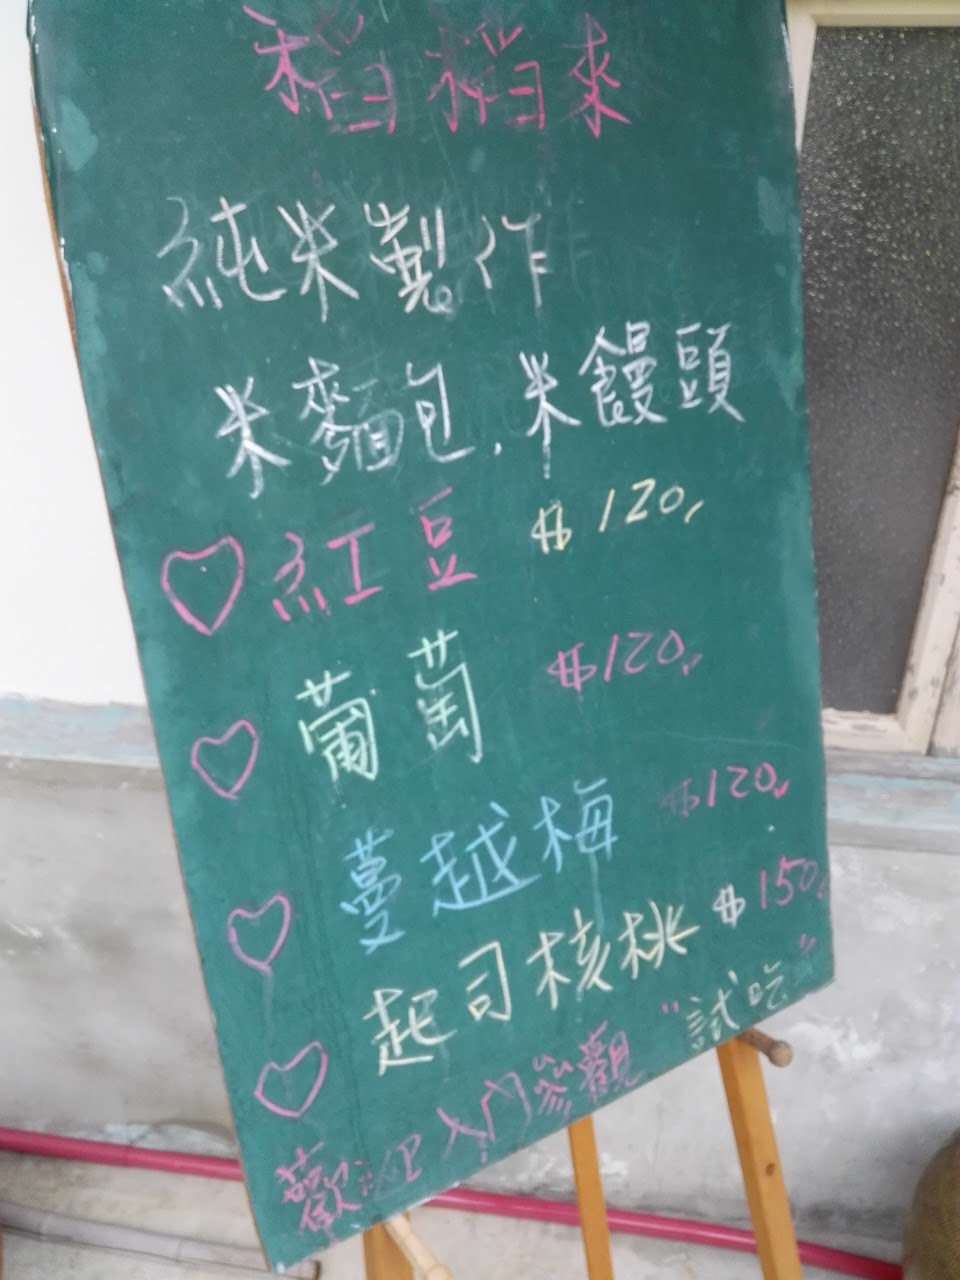 稻稻來
純米製作
米麵包,米饅頭
紅豆 $120,
葡萄 $120,
蔓越梅 $120,
起司核桃 $150,
歡迎入內參觀"試吃"